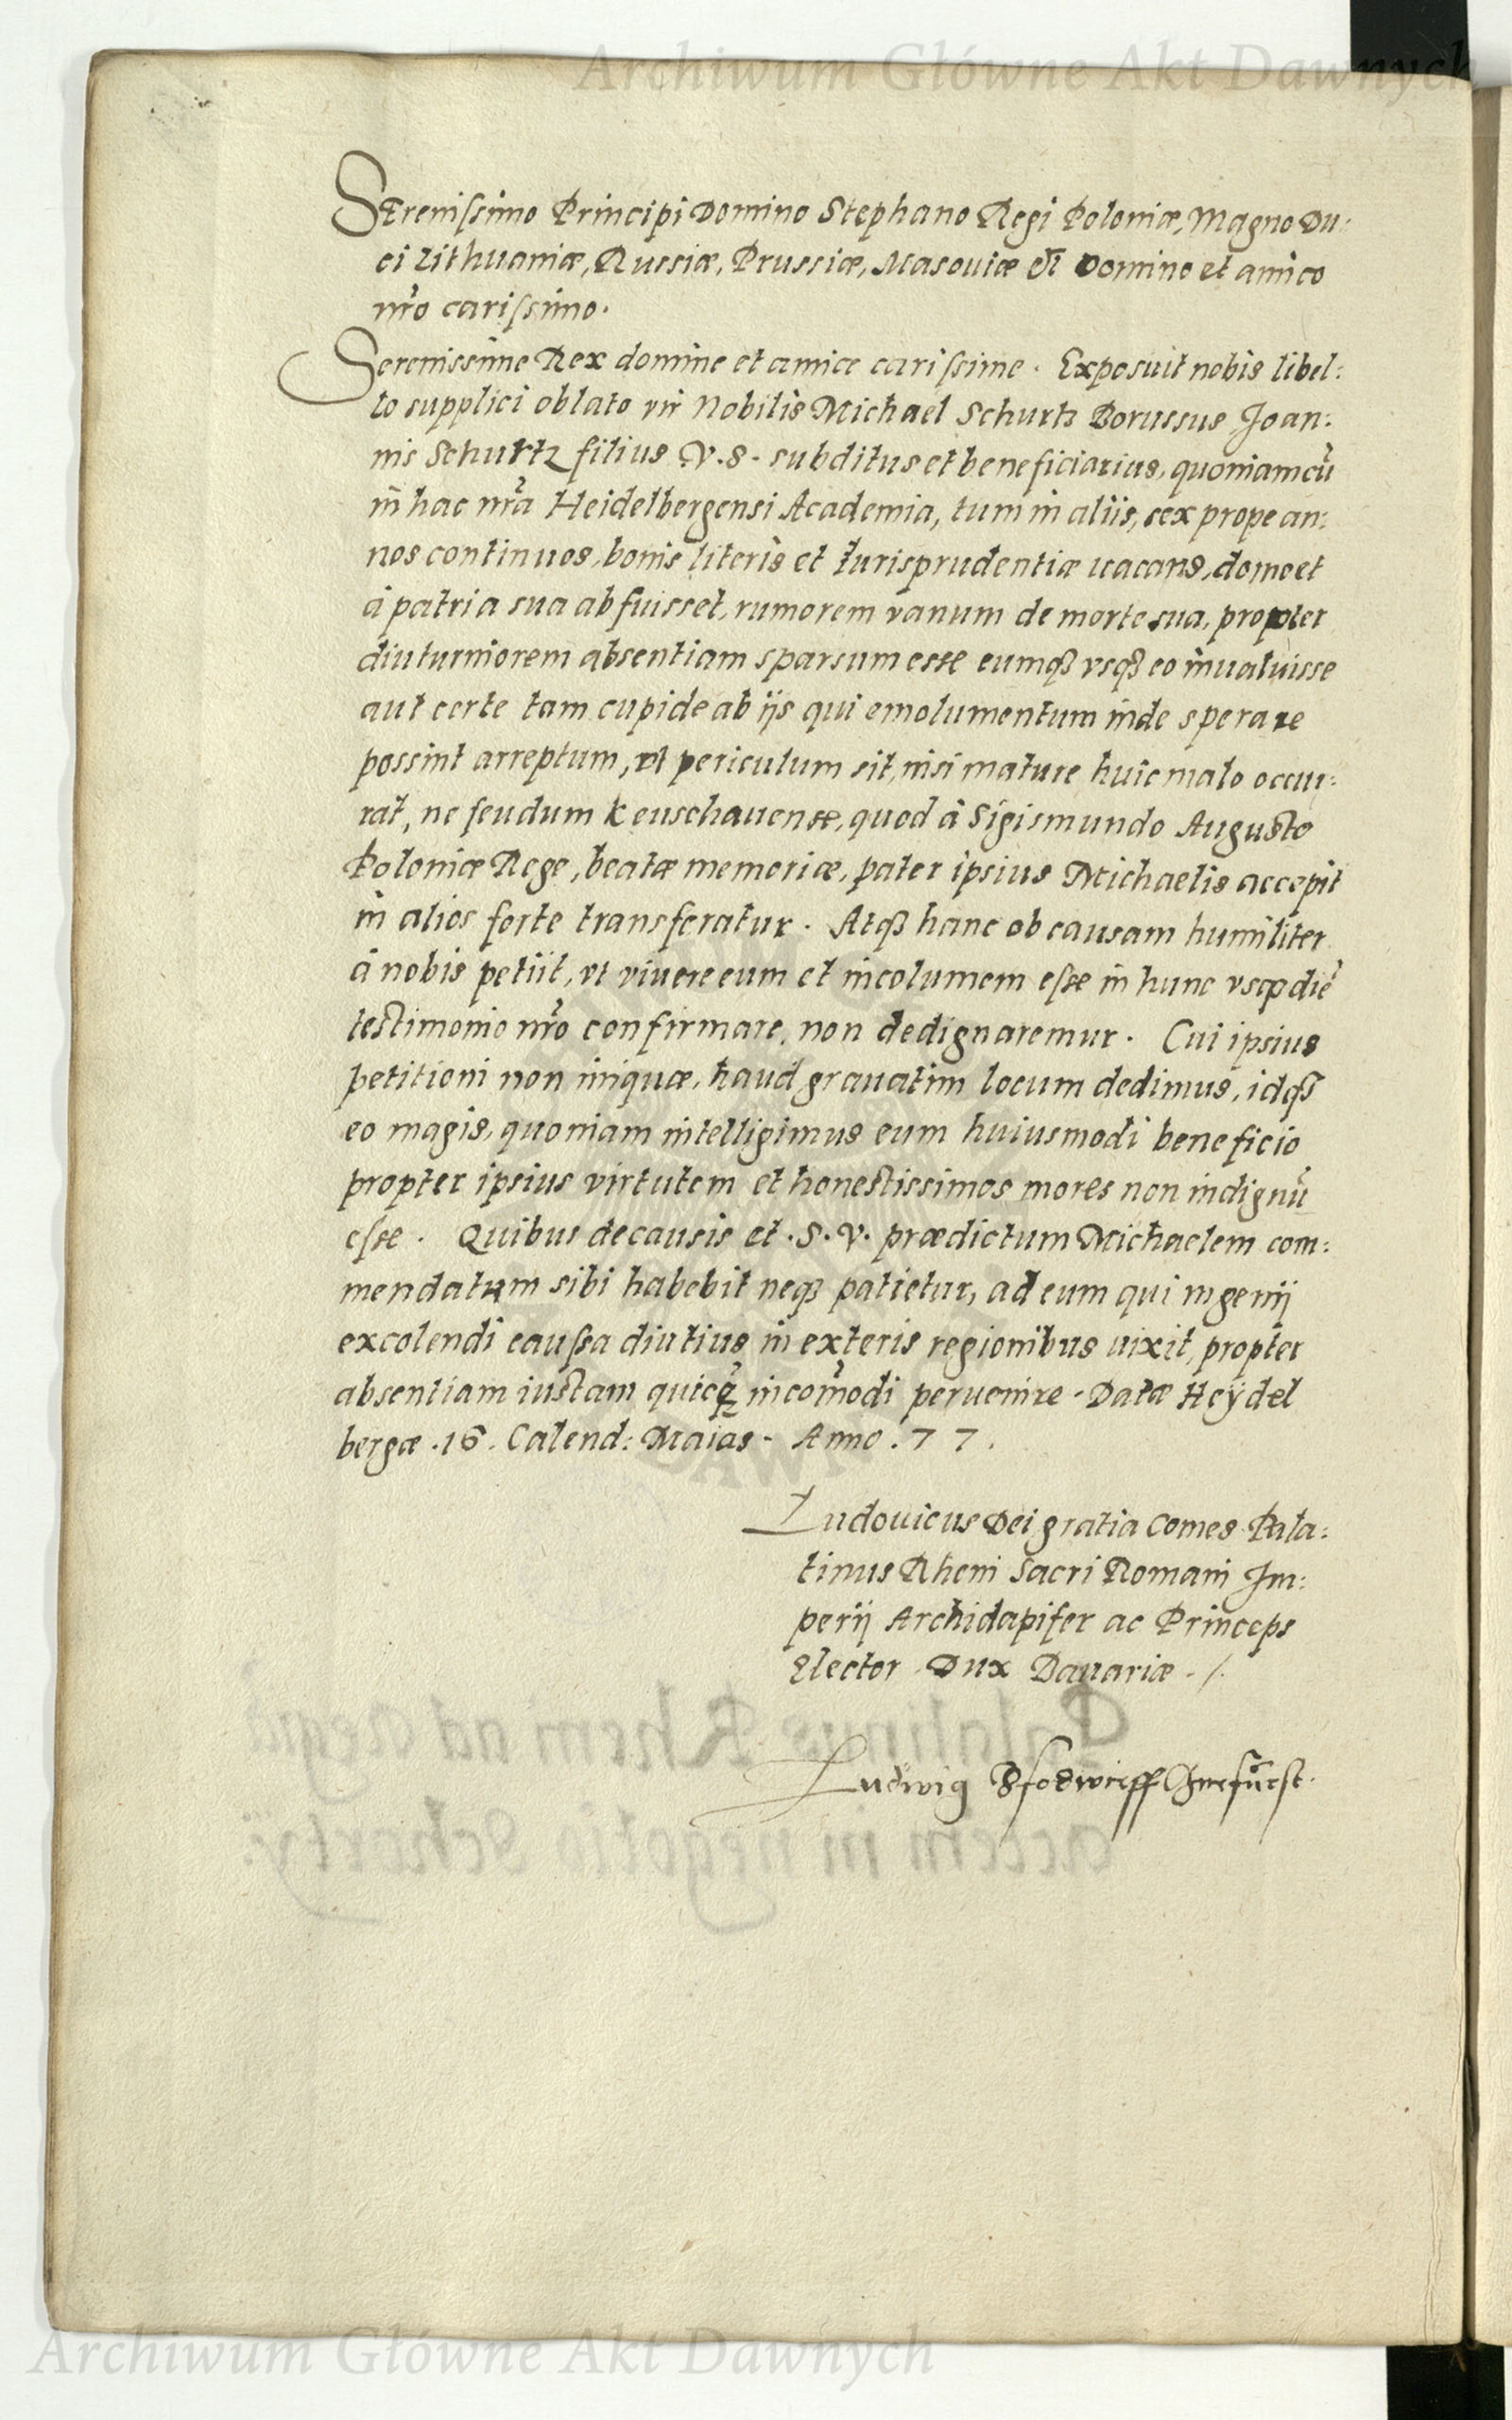 Archiwum Główne Akt Dawnych
SErenissimo Principi Domino Stephano Regi Poloniæ, Magno Du:
ci Lithuaniæ, Russiæ, Prussiæ, Masouiæ etc Domino et amico
nro carissimo.
Serenissime Rex domine et amice carissime. Exposuit nobis libel:
lo supplici oblato vir Nobilis Michael Schurtz Borussus Joan:
nis Schurtz filius V.S. subditus et beneficiarius, quoniam cū
in hac nrā Heidelbergensi Academia, tum in aliis, sex prope an:
nos continuos, bonis literis et Iurisprudentiæ uacans, domo et
à patria sua abfuisset, rumorem vanum de morte sua, propter
diuturniorem absentiam sparsum esse eumqꝫ vsqꝫ eo inualuisse
aut certe tam cupide ab ijs qui emolumentum inde sperare
possint arreptum, vt periculum sit, nisi mature huic malo occur:
rat, ne feudum Keuschauense, quod à Sigismundo Augusto
Poloniæ Rege, beatæ memoriæ, pater ipsius Michaelis accepit
in alios forte transferatur. Atqꝫ hanc ob causam humiliter
à nobis petiit, vt viuere eum et incolumem esse in hunc vsqꝫ diē
testimonio nro confirmare, non dedignaremur. Cui ipsius
petitioni non iniquæ, haud grauatim locum dedimus, idqꝫ
eo magis, quoniam intelligimus eum huiusmodi beneficio
propter ipsius virtutem et honestissimos mores non indignū
esse. Quibus de causis et .S.V. prædictum Michaelem com:
mendatum sibi habebit neqꝫ patietur, ad eum qui ingenij
excolendi caussa diutius in exteris regionibus uixit, propter
absentiam iustam quicqꝫ incom̄odi peruenire. Datæ Heÿdel
bergæ .16. Calend: Maias. Anno .77.
Ludouicus Dei gratia Comes Pala:
tinus Rheni Sacri Romani Im:
perij Archidapifer ac Princeps
Elector Dux Bauariæ ./.
Ludwig Churfürst.
Archiwum Główne Akt Dawnych